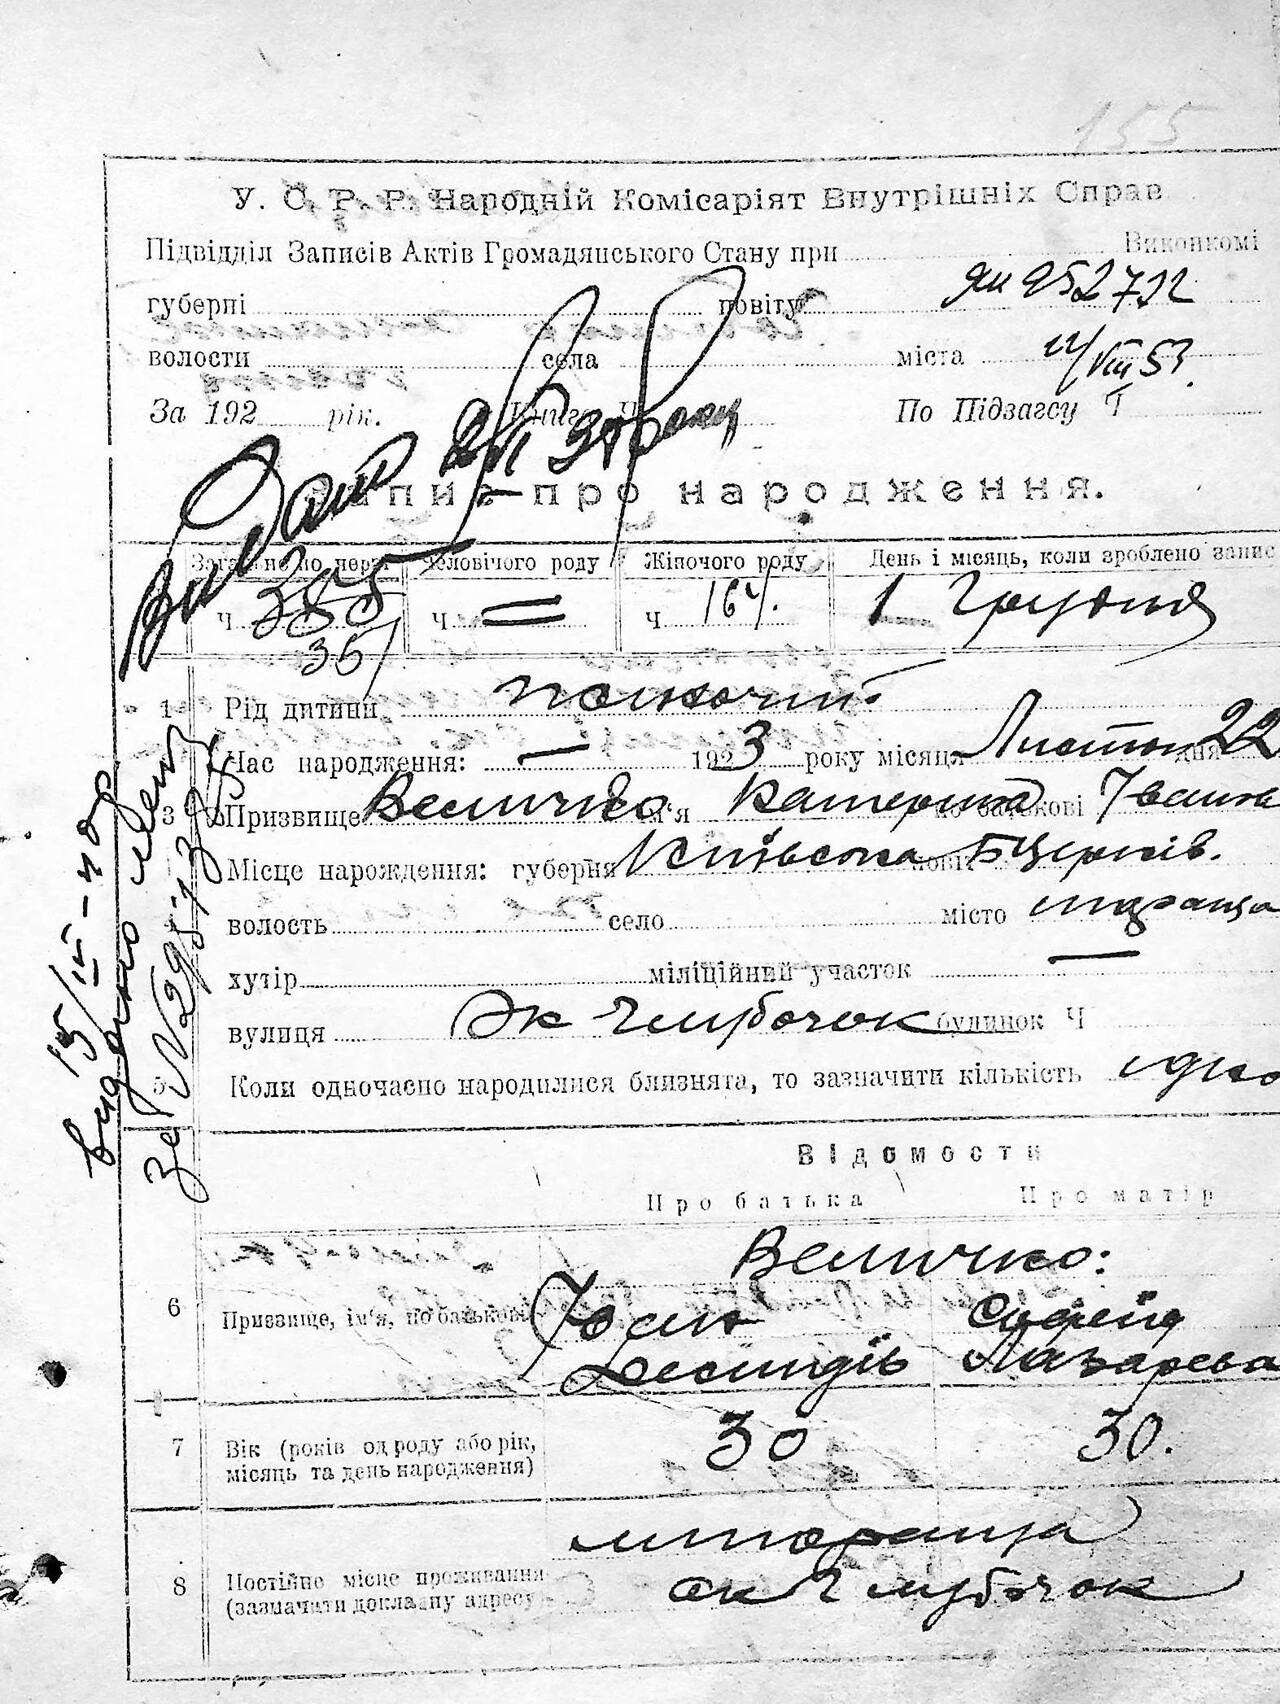 155
У. С. Р. Р. Народній Комісаріят Внутрішніх Справ
Підвідділ Записів Актів Громадянського Стану при Виконкомі
губерні повіту 252722
волости села міста 14/VIII 53
За 192 рік. Книга Ч По Підзагсу Ч
Запис про народження.
Загальне по черзі Чоловічого роду Жіночого роду День і місяць, коли зроблено запис
Ч 385 Ч = Ч 164. 1 Грудня
351
1 Рід дитини жіночий
Час народження: — 1923 року місяця Листоп. 22 дня
3 Призвище Величко ім'я Катерина по батькові Іванів
Місце народження: губерня Київська повіт Бцерків.
волость село місто
хутір міліційний участок —
вулиця будинок Ч
5 Коли одночасно народилися близнята, то зазначити кількість одно
15/III-40р
видано
за N 295
Відомости
Про батька Про матір
Величко:
6 Призвище, ім'я, по батькові Іван
Лазарева
7 Вік (років од роду або рік, 30 30.
місяць та день народження)
8 Постійне місце проживання
(зазначити докладну адресу)